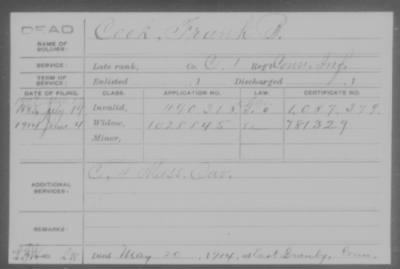 DEAD
NAME OF SOLDIER: Cook, Frank P.
SERVICE: Late rank, Co. C, 1 Reg't Conn. Inf.
TERM OF SERVICE: Enlisted , 1 Discharged , 1
DATE OF FILING. CLASS. APPLICATION NO. LAW. CERTIFICATE NO.
July 19 Invalid, 1,087,379
1904 June 4 Widow, 781329
Minor,
ADDITIONAL SERVICES: Mass. Cav.
REMARKS:
Died May 20, 1904, at East Granby, Conn.